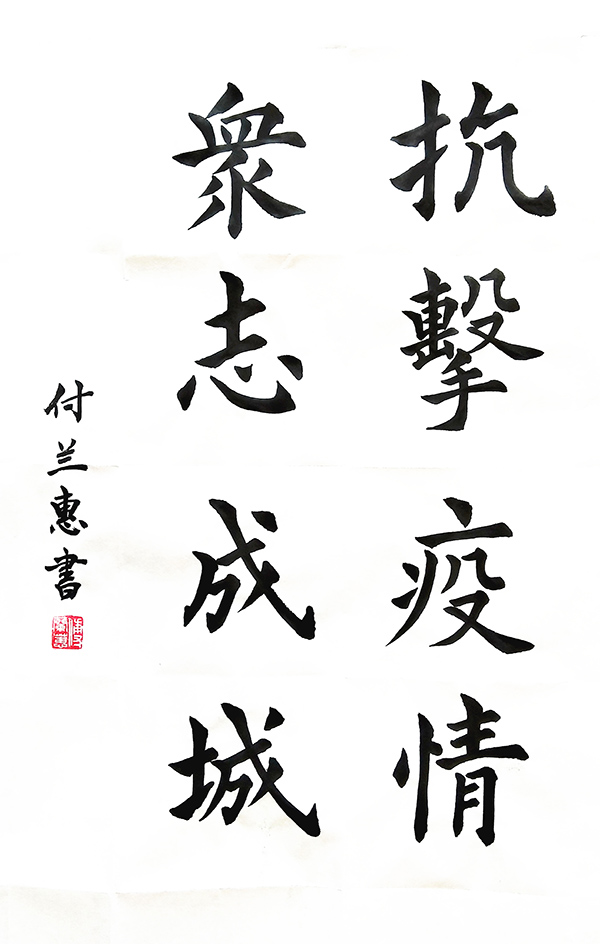 抗擊疫情
衆志成城
付兰惠書